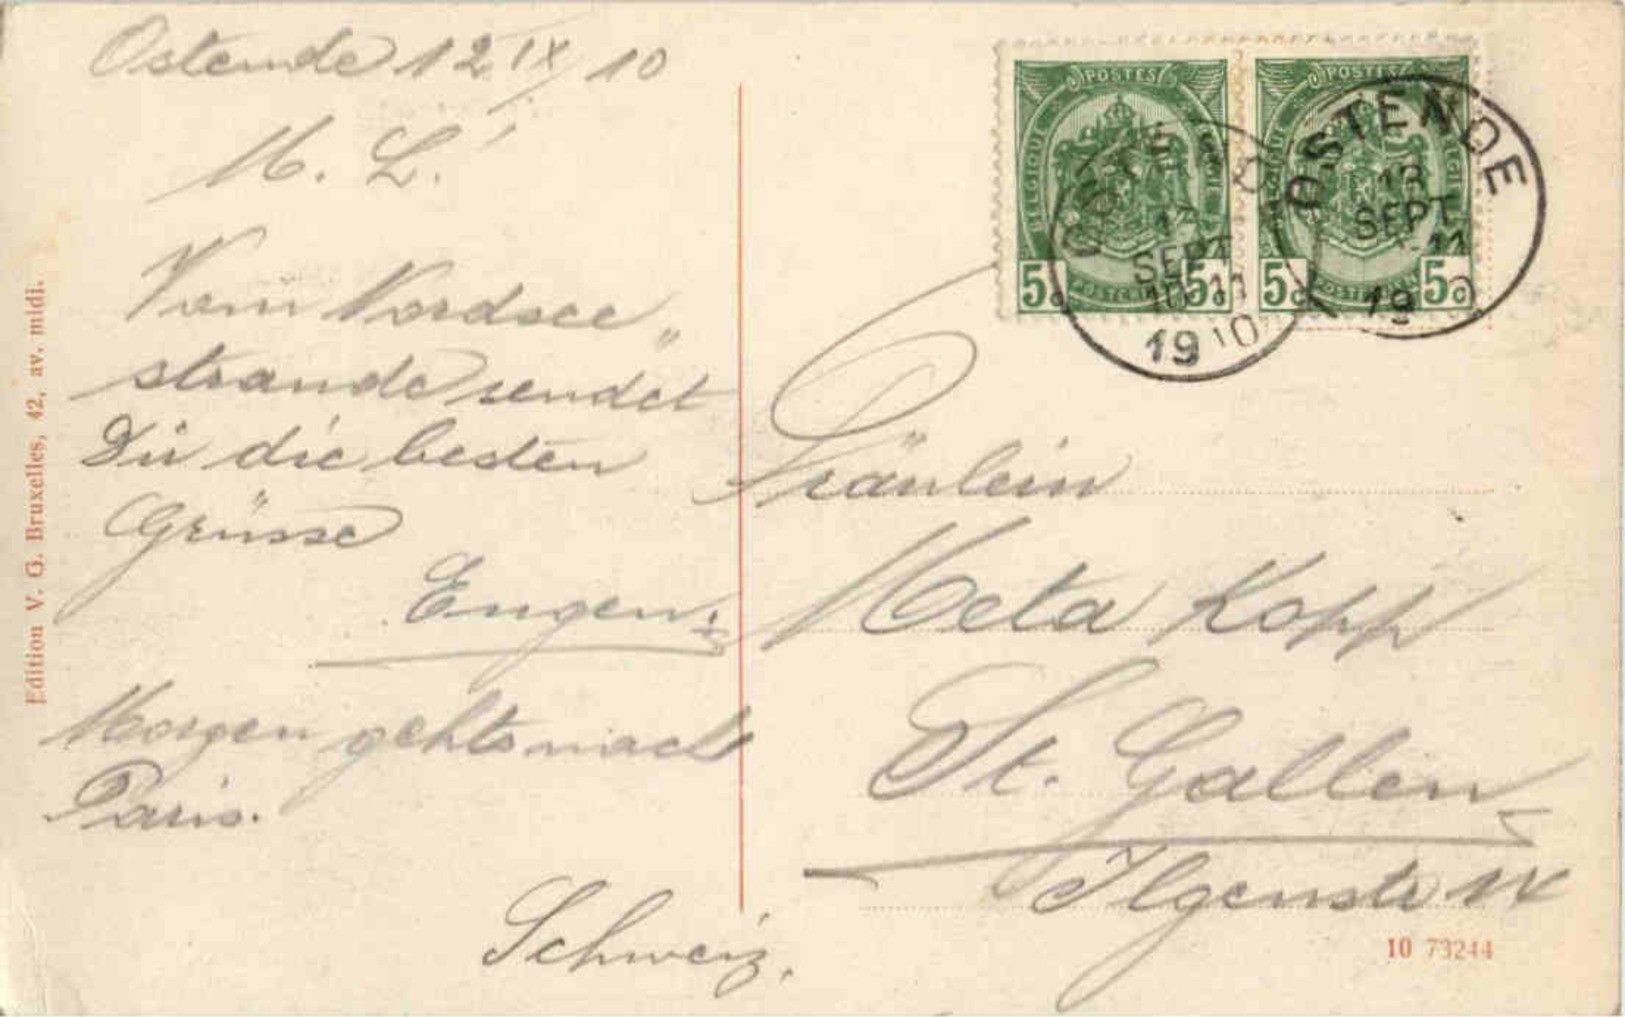 Ostende 12 IX 10
M. L.
Vom Nordsee
strande sendet
Dir die besten
Grüsse
Eugen.
Morgen gehts nach
Paris.
Fräulein
Meta Kopp
St. Gallen
Ilgenstr 14
Schweiz.
POSTES
BELGIQUE
5c 5c
POSTES
5c 5c
OSTENDE
SEPT
10-11
1910
OSTENDE
13
SEPT
11
1910
Edition V. G. Bruxelles, 42, av. midi.
10 73244